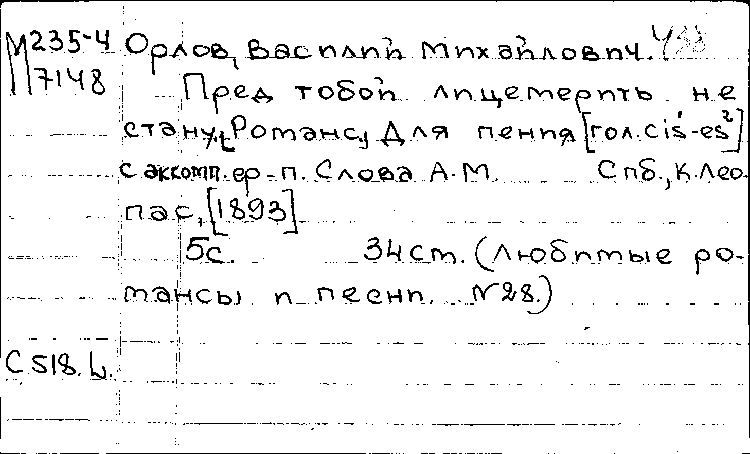 М235-4 Орлов, Василий Михайлович.
М7148 Пред тобой лицемерить не
стану. Романс, Для пения [гол. cis¹-es²]
с аккомп. ф-п. Слова А.М. Спб., К. Лео-
пас, [1893]
5с. 34 ст. (Любимые ро-
мансы и песни. №28.)
С 518.